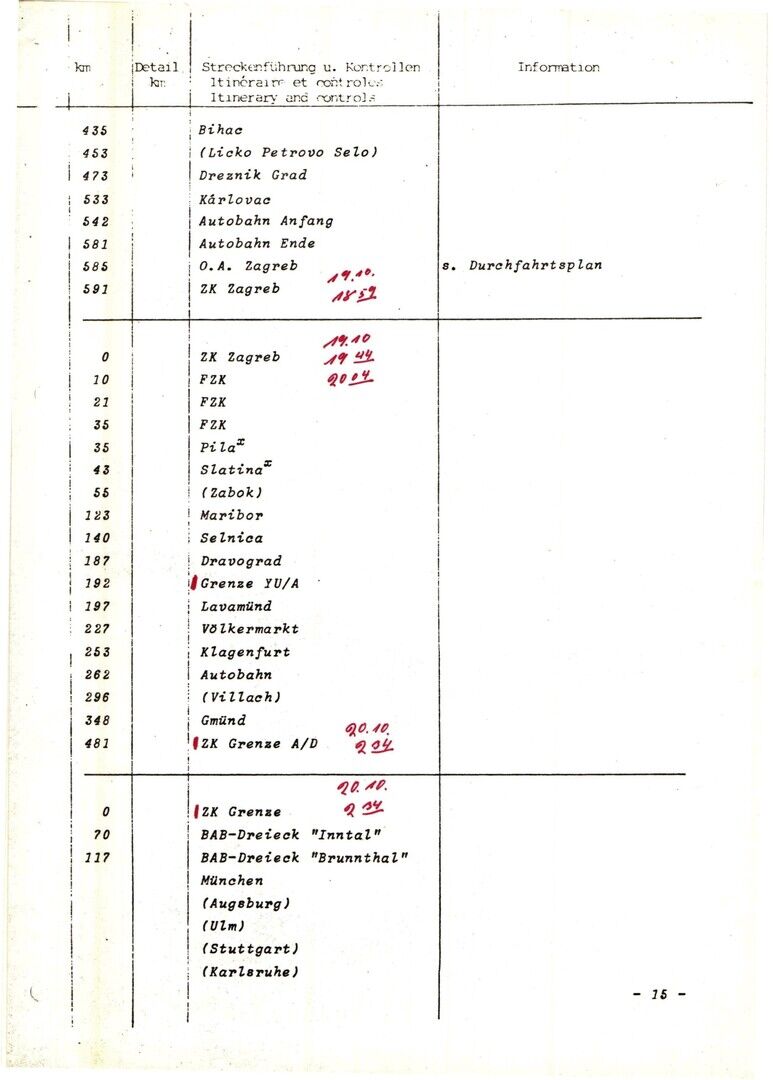 km Detail Streckenführung u. Kontrollen Information
km Itinéraire et contrôles
Itinerary and controls
435 Bihac
453 (Licko Petrovo Selo)
473 Dreznik Grad
533 Kárlovac
542 Autobahn Anfang
581 Autobahn Ende
585 O.A. Zagreb 19.10. s. Durchfahrtsplan
591 ZK Zagreb 18 59
19.10
0 ZK Zagreb 19 44
10 FZK 20 04
21 FZK
35 FZK
35 Pila x
43 Slatina x
55 (Zabok)
123 Maribor
140 Selnica
187 Dravograd
192 Grenze YU/A
197 Lavamünd
227 Völkermarkt
253 Klagenfurt
262 Autobahn
296 (Villach)
348 Gmünd 20.10.
481 ZK Grenze A/D 2 34
20.10.
0 ZK Grenze 2 34
70 BAB-Dreieck "Inntal"
117 BAB-Dreieck "Brunnthal"
München
(Augsburg)
(Ulm)
(Stuttgart)
(Karlsruhe)
- 15 -